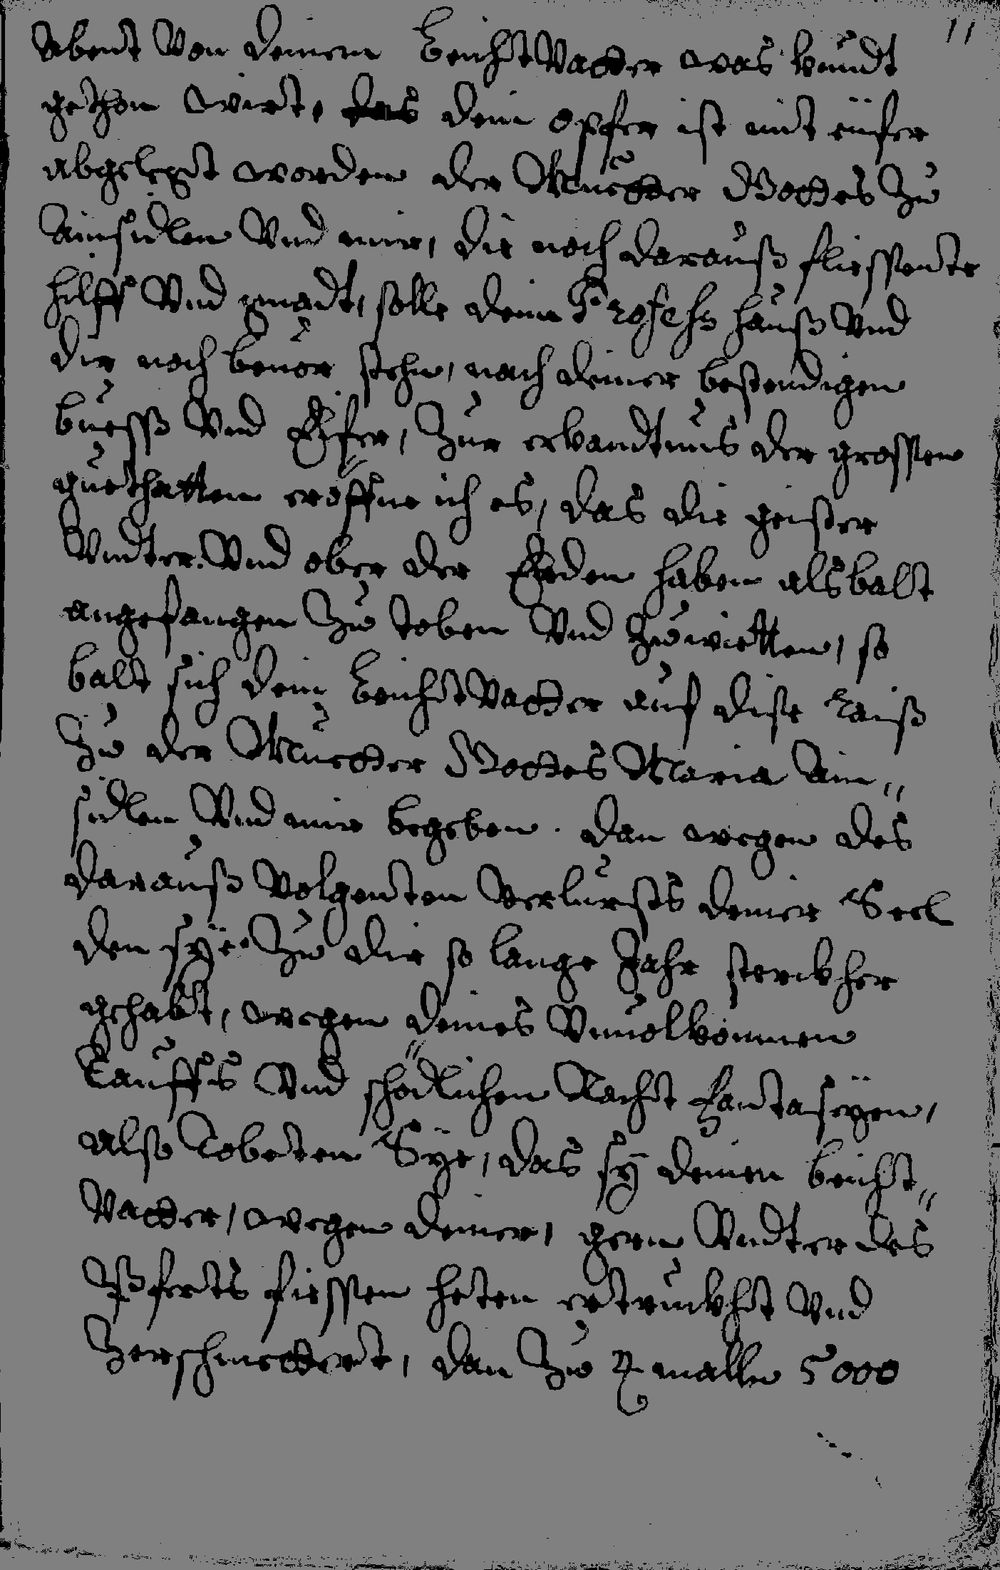 11
abent Von deinem BeichtVatter was kundt
gethon wirt, das dein opfer ist mit eüfer
abgelegt worden der Muetter Gottes Zu
Ainsidlen Vnd mir, die noch darauß fliessente
hilff Vnd gnadt, solle dein Profehs hauß Vnd
dir noch beuor stehn, nach deiner bestendigen
buess Vnd Eifer, Zur erkandtnus der grossen
guethatten eröffne ich es, das die geister
Vndter Vnd ober der Erden haben alsbalt
angefangen Zu toben Vnd Zu wietten, so
balt sich dein BeichtVatter auf dise raiß
Zu der Muetter Gottes Maria Ain„
sidlen Vnd mir begeben. dan wegen des
darauß Volgenten Verlursts deiner Seel
den sÿe Zu dir so lange Jahr sterckher
gehabt, wegen deines Vnuolkommen
Tauffs Vnd schödlichen Nacht fantaseÿen,
also Tobeten Sÿe, das sÿ deinen beicht„
Vatter, wegen deiner, gern Vndter des
Pferts fiessen heten ertruckht Vnd
Zerschmettert, dan Zu mallen 5000